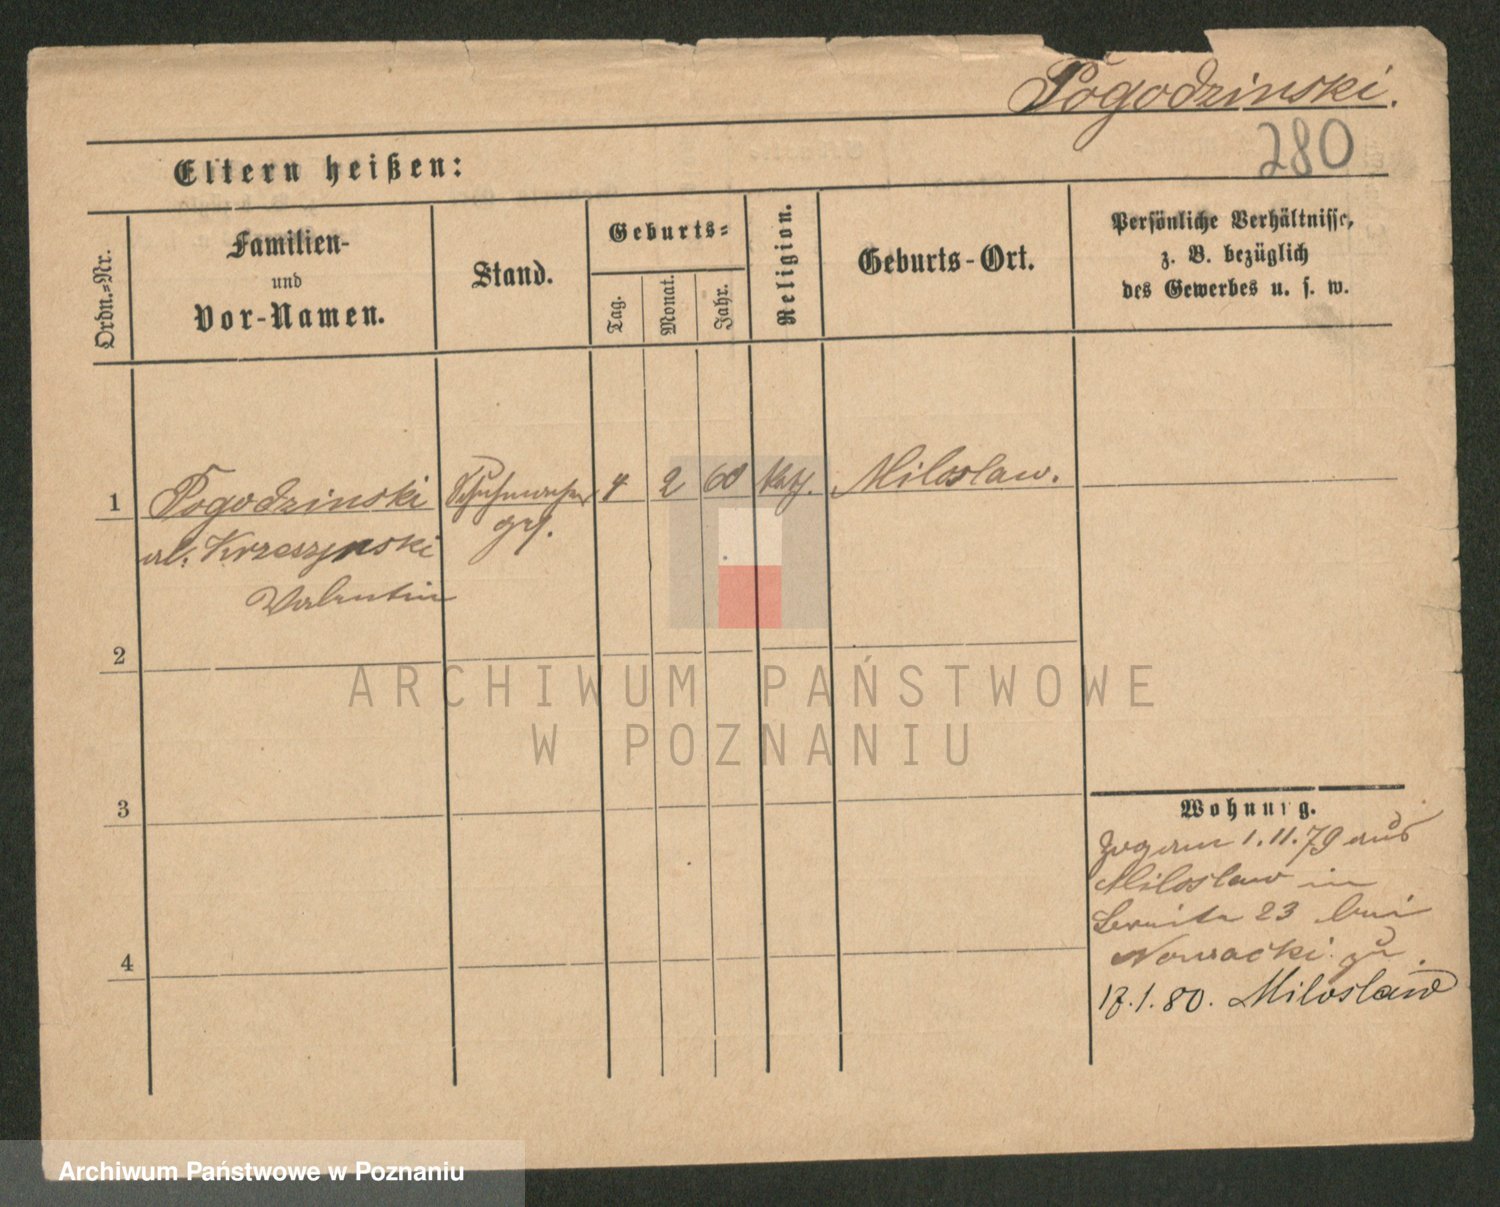 Pogodzinski.
280
Eltern heißen:
Ordn.-Nr.
Familien-
und
Vor-Namen.
Stand.
Geburts-
Tag.
Monat.
Jahr.
Religion.
Geburts-Ort.
Persönliche Verhältnisse,
z. B. bezüglich
des Gewerbes u. s. w.
1 Pogodzinski Schuhmacher 4 2 60 kath. Miloslaw.
al. Krzeszynski ges.
Valentin
2
3
4
Wohnung.
Zog am 1.11.79 aus
Miloslaw in
23 bei
Nowacki zu.
17.1.80. Miloslaw
ARCHIWUM PAŃSTWOWE
W POZNANIU
Archiwum Państwowe w Poznaniu